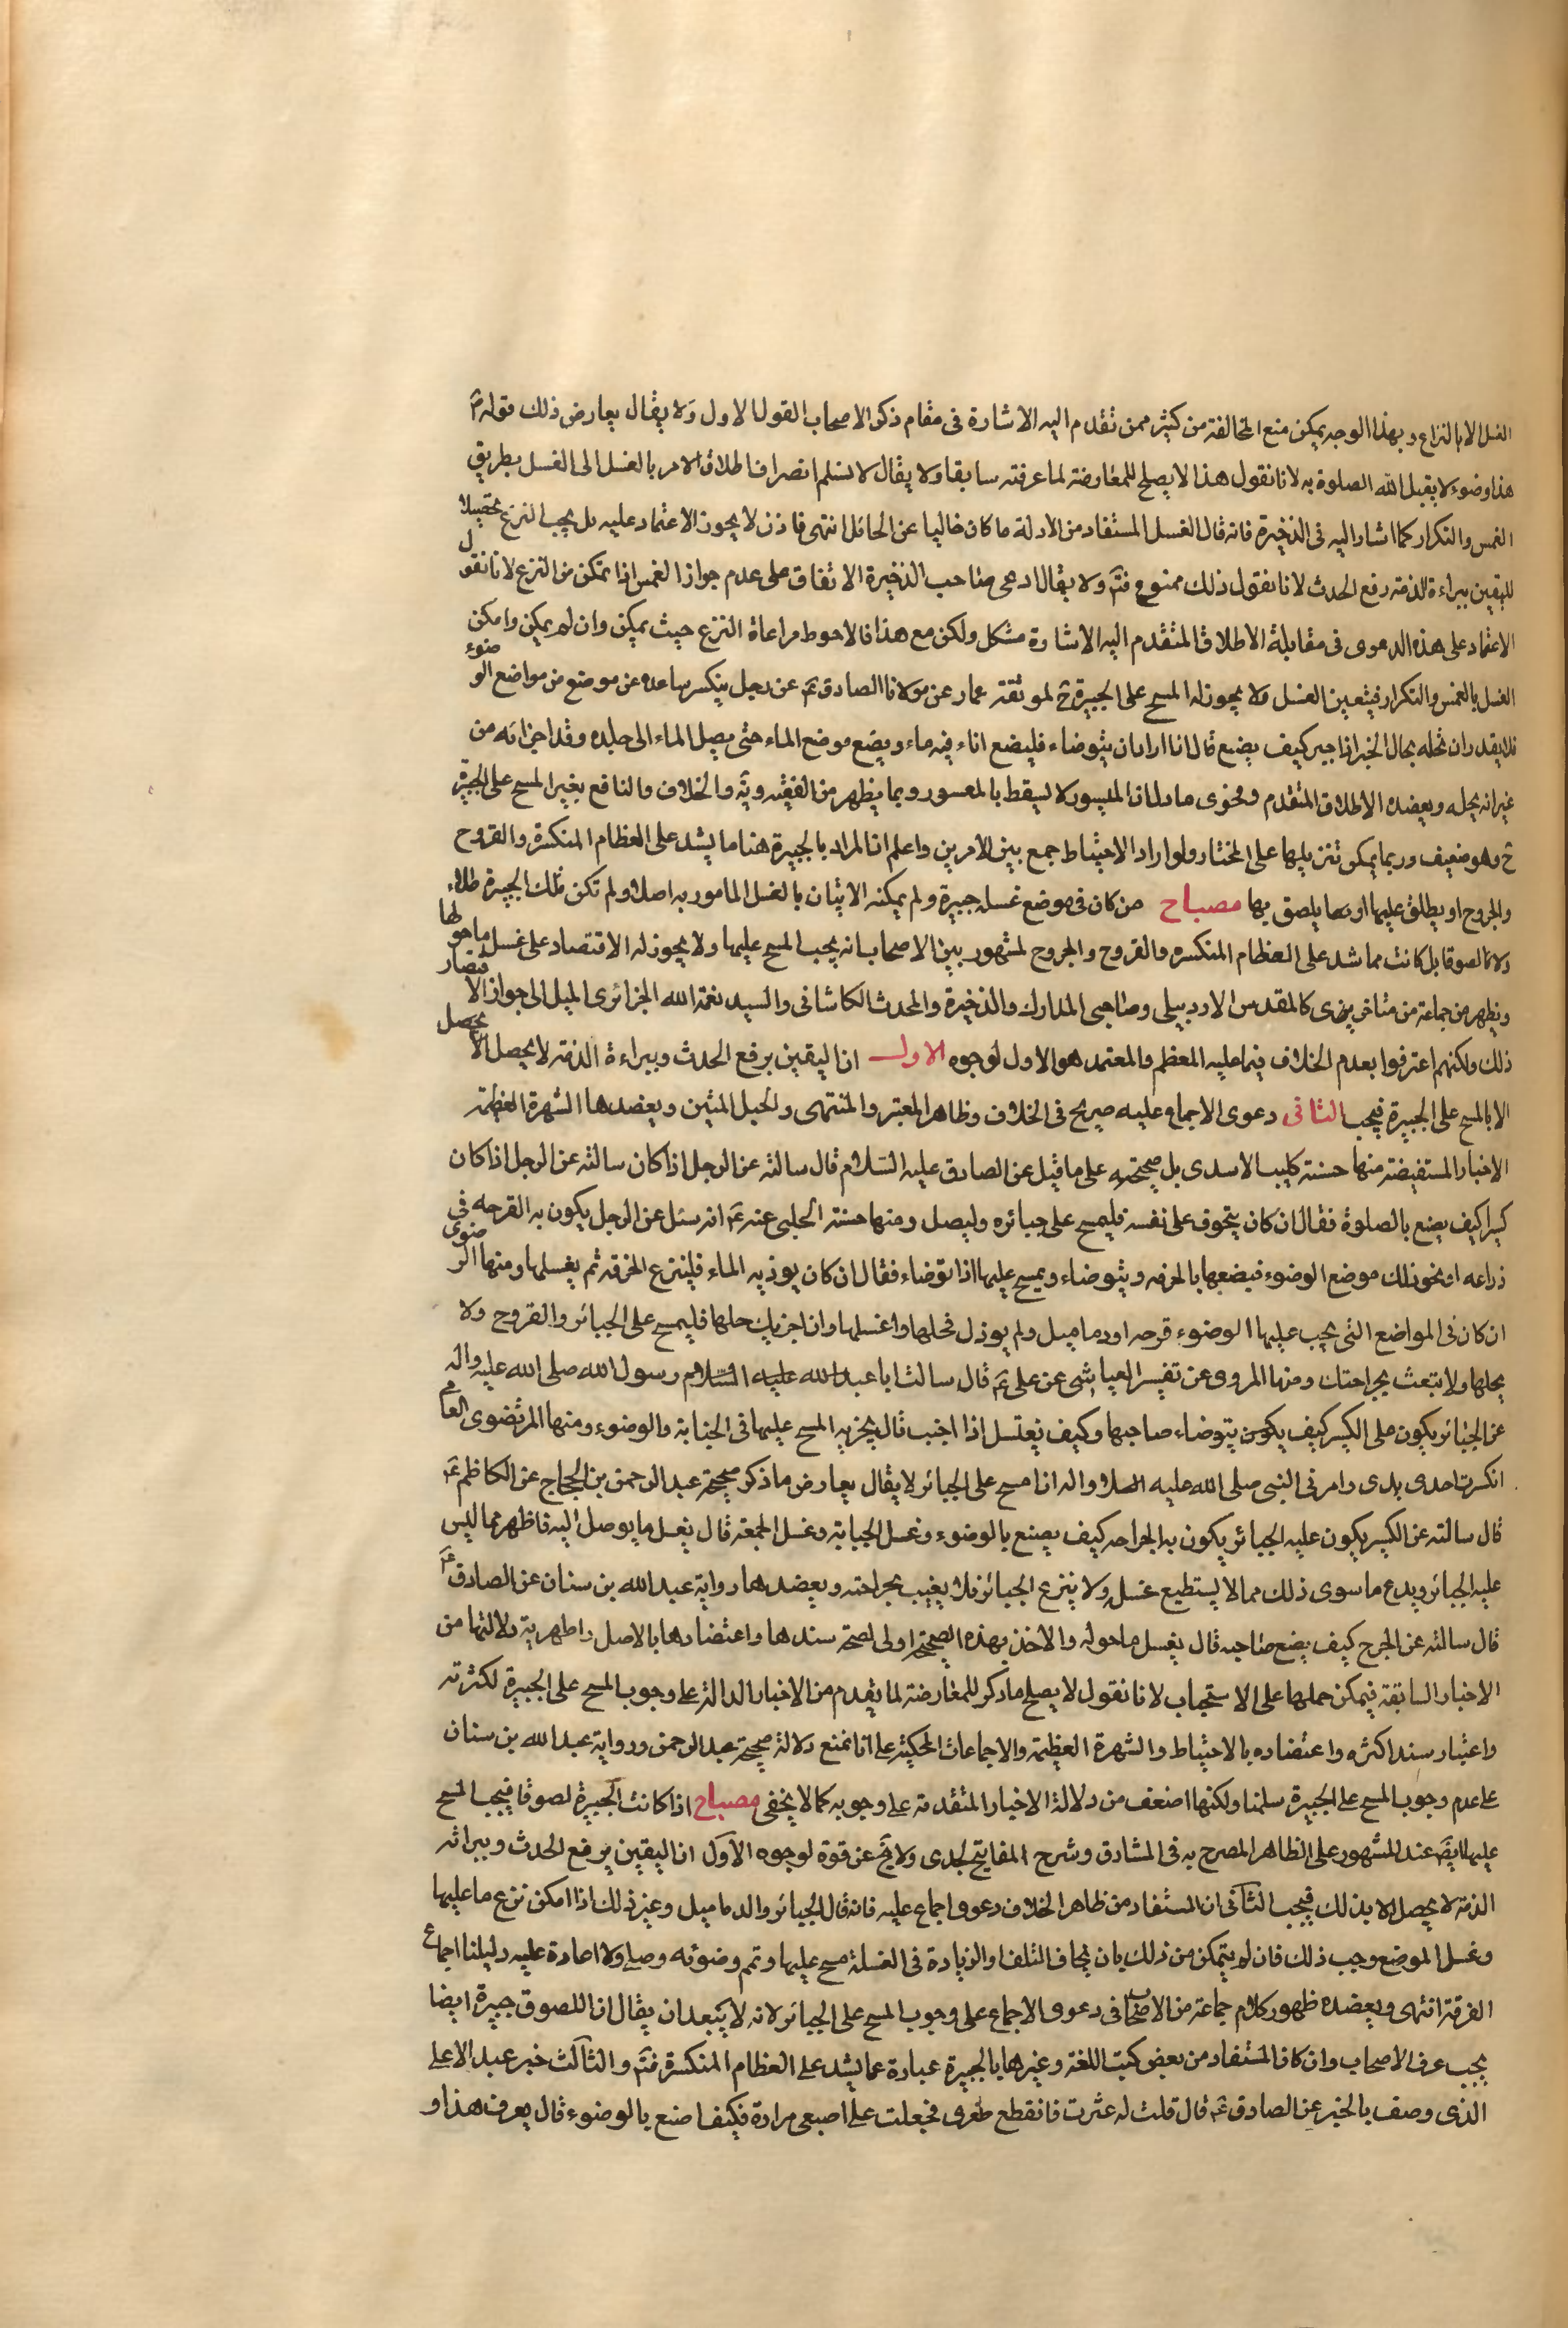 الغسل الا بالنزاع وبهذا الوجه يمكن منع المخالفة من كثير ممن تقدم اليه الاشارة فى مقام ذكر الاصحاب القول الاول ولا يقال يعارض ذلك قوله ع
هذا وضوء لا يقبل الله الصلوة به لانا نقول هذا لا يصلح للمعارضة لما عرفته سابقا ولا يقال لا نسلم انصراف اطلاق الامر بالغسل الى الغسل بطريق
الغمس والتكرار كما اشار اليه فى الذخيرة فانه قال الغسل المستفاد من الادلة ما كان خاليا عن الحائل انتهى فاذن لا يجوز الاعتماد عليه بل يجب النزع تحصيلا
لليقين ببراءة الذمة رفع الحدث لانا نقول ذلك ممنوع فتم ولا يقال ادعى صاحب الذخيرة الاتفاق على عدم جواز الغمس اذا تمكن من النزع لانا نقول
الاعتماد على هذه الدعوى فى مقابلة الاطلاق المتقدم اليه الاشارة مشكل ولكن مع هذا فالاحوط مراعاة النزع حيث يمكن وان لم يمكن وامكن
الغسل بالغمس والتكرار فيتعين الغسل ولا يجوز له المسح على الجبيرة ح لموثقة عمار عن مولانا الصادق ع عن رجل ينكسر ساعده عن موضع من مواضع الوضوء
فلا يقدر ان يحله بحال الخبر اذا جبر كيف يصنع قال اذا اراد ان يتوضاء فليضع اناء فيه ماء ويضع موضع الماء حتى يصل الماء الى جلده وقد اجزائه من
غير انه يحله ويعضده الاطلاق المتقدم وفحوى ما دل ان الميسور لا يسقط بالمعسور وبما يظهر من الفقيه ويَه والخلاف والنافع بغير المسح على الجبيرة
ح وهو ضعيف وربما يمكن تنزيلها على المختار ولو اراد الاحتياط جمع بين الامرين واعلم ان المراد بالجبيرة هنا ما يشد على العظام المنكسرة والقروح
والجروح او يطلق عليها او بما يلصق بها مصباح من كان فى موضع غسله جبيرة ولم يمكنه الاتيان بالغسل المامور به اصلا ولم تكن تلك الجبيرة طلاء
ولا لصوقا بل كانت مما شد على العظام المنكسره والقروح والجروح لمشهور بين الاصحاب انه يجب المسح عليها ولا يجوز له الاقتصاد على غسل ما حولها
ويظهر من جماعة من متاخرى كالمقدس الاردبيلى وصاحبى المدارك والذخيرة والمحدث الكاشانى والسيد نعمة الله الجزائرى الميل الى جواز الاقتصار
ذلك ولكنهم اعترفوا بعدم الخلاف فيما عليه المعظم والمعتمد هو الاول لوجوه الاول ان اليقين برفع الحدث وببراءة الذمة لا يحصل الا يحصل
الا بالمسح على الجبيرة فيجب الثانى دعوى الاجماع عليه صريح فى الخلاف وظاهر المعتبر والمنتهى والحبل المتين ويعضدها الشهرة العظيمة
الاخبار المستفيضة منها حسنة كليب الاسدى بل صحيحته على ما قيل عن الصادق عليه السلام قال سالته عن الرجل اذا كان سالته عن الرجل اذا كان
كسيرا كيف يصنع بالصلوة فقال ان كان يتخوف على نفسه فليمسح على جبائره وليصل ومنها حسنة الحلبى عنه ع انه سئل عن الرجل يكون به القرحه فى
ذراعه او نحو ذلك موضع الوضوء فيضعها بالخرقه ويتوضاء ويمسح عليها اذا توضاء فقال ان كان يوذيه الماء فلينزع الخرقه ثم يغسلها ومنها الرضوى
ان كان فى المواضع التى يجب عليها الوضوء قرحه او دماميل ولم يوذ ل فحلها واغسلها وان اجزيك حلها فليمسح على الجبائر والقروح ولا
يحلها ولا تبعث بجراحتك ومنها المروى عن تفسير العياشى عن على ع قال سالت ابا عبد الله عليه السلام رسول الله صلى الله عليه واله
عن الجبائر يكون على الكسير كيف يكون يتوضاء صاحبها وكيف يغتسل اذا اجنب قال يجزيه المسح عليها فى الجنابة والوضوء ومنها المرتضوى العام
انكرت احدى يدى وامرنى النبى صلى الله عليه واله ان امسح على الجبائر لا يقال يعارض ما ذكر صحيحة عبد الرحمن بن الحجاج عن الكاظم ع
قال سالته عن الكسير يكون عليه الجبائر يكون به الجراحه كيف يصنع بالوضوء وغسل الجنابة وغسل الجمعة قال يغسل ما يوصل اليه فاظهر مما ليس
عليه الجبائر ويدع ما سوى ذلك مما لا يستطيع غسله ولا ينزع الجبائر فلا يغيب بجراحته ويعضدها رواية عبد الله بن سنان عن الصادق ع
قال سالته عن الجرح كيف يضع صاحبه قال يغسل ما حوله والاخذ بهذه الصحيحة اولى لصحة سندها واعتضادها بالاصل واظهرية دلالتها من
الاخبار السابقة فيمكن حملها على الاستحباب لانا نقول لا يصلح ما ذكر للمعارضة لما تقدم من الاخبار الدالة على وجوب المسح على الجبيرة لكثرته
واعتبار سند اكثره واعتضاده بالاحتياط والشهرة العظيمة والاجماعات المحكية على انا نمنع دلالة صحيحة عبد الرحمن ورواية عبد الله بن سنان
على عدم وجوب المسح على الجبيرة سلمنا ولكنها اضعف من دلالة الاخبار المتقدمة على وجوبه كما لا يخفى مصباح اذا كانت الجبيرة لصوقا فيجب المسح
عليها ايضَ عند المشهور على الظاهر المصرح به فى المشارق وشرح المفاتيح لجدى ولا يخ عن قوة لوجوه الاول ان اليقين برفع الحدث وببرائه
الذمة لا يحصل الا بذلك فيجب الثانى ان المستفاد من ظاهر الخلاف دعوى اجماع عليه فانه قال الجبائر والدماميل وغير ذلك اذا امكن نزع ما عليها
وغسل الموضع وجب ذلك فان لم يتمكن من ذلك بان يخاف التلف او الزيادة فى العسلة مسح عليها وتم وضوئه وصلى ولا اعادة عليه دليلنا اجماع
الفرقة انتهى ويعضده ظهور كلام جماعة من الاصحاب فى دعوى الاجماع على وجوب المسح على الجبائر لانه لا يتبعد ان يقال ان اللصوق جبيرة ايضا
بحسب عرف الاصحاب وان كان المستفاد من بعض كتب اللغة وغيرها بالجبيرة عبارة عما يشد على العظام المنكسرة فتم والثالث خبر عبد الاعلى
الذى وصف بالخبر عن الصادق ع قال قلت له عثرت فانقطع ظفرى فجعلت على اصبعى مرارة فكيف اصنع بالوضوء قال يعرف هذا و